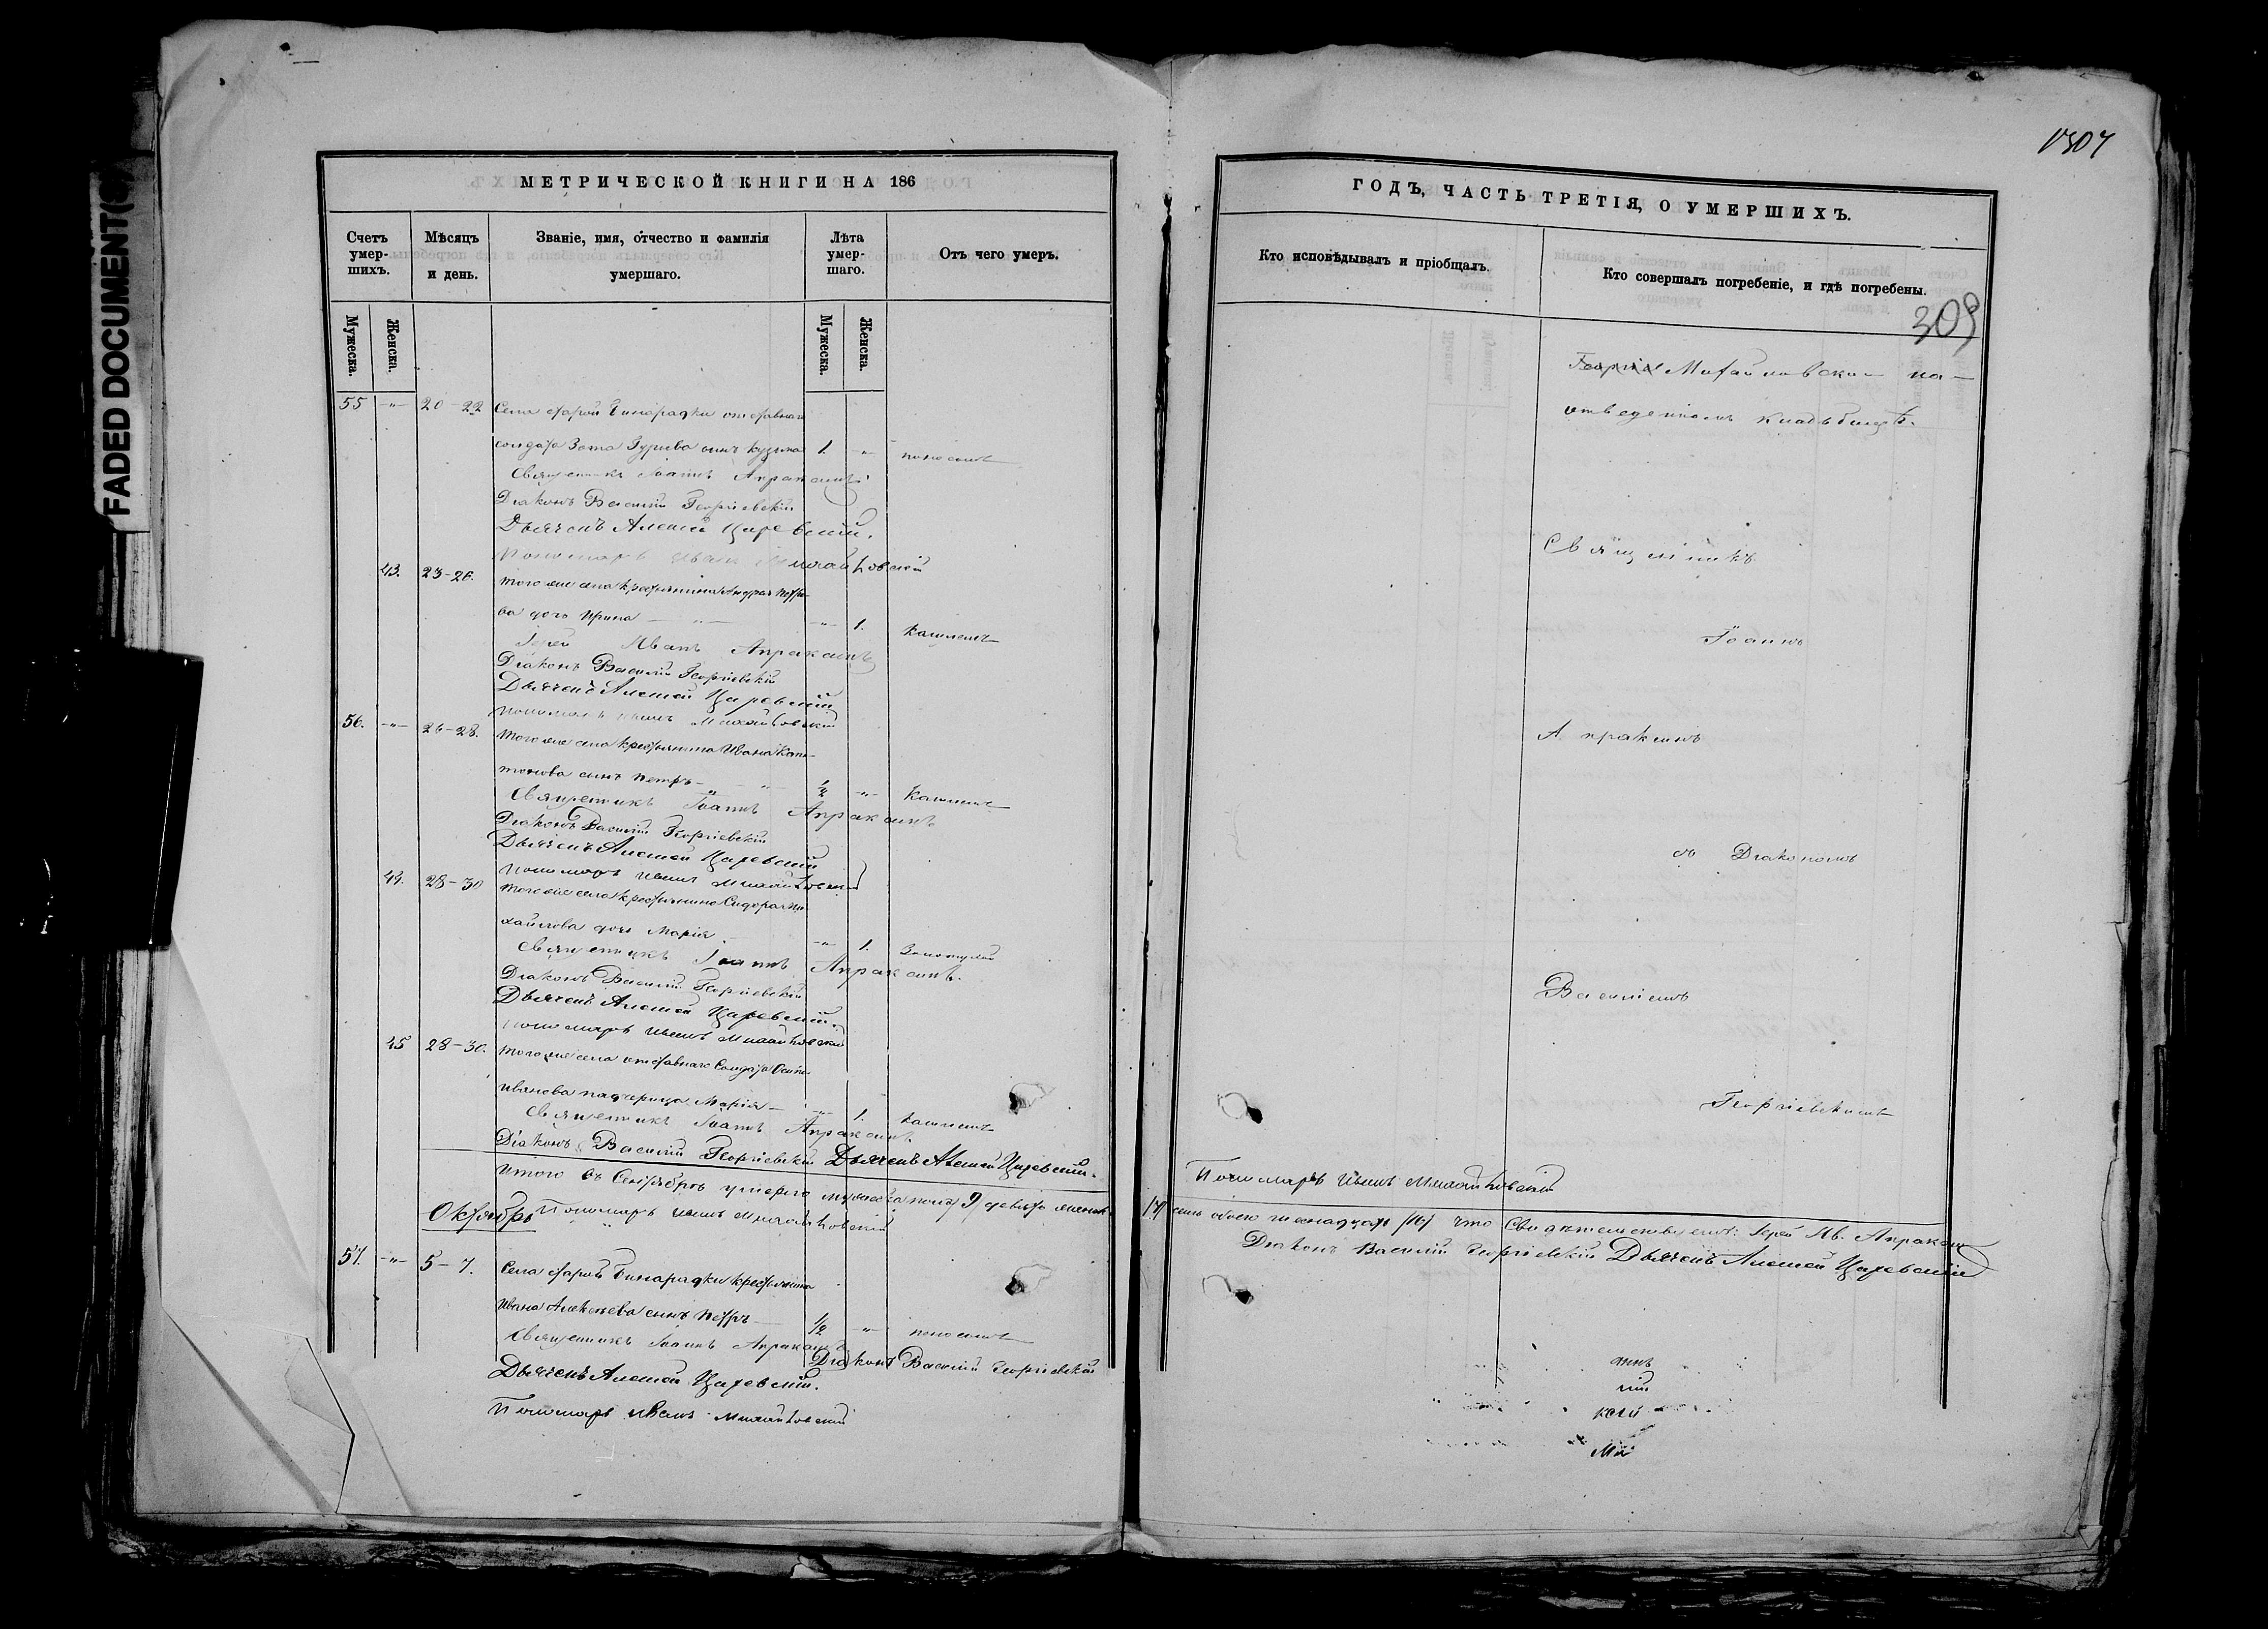 FADED DOCUMENT(S)
МЕТРИЧЕСКОЙ КНИГИ НА 186
Счетъ умер-шихъ.
Мѣсяцъ и день.
Званіе, имя, отчество и фамилія умершаго.
Лѣта умер-шаго.
Отъ чего умеръ.
Мужеска.
Женска.
Мужеска.
Женска.
55 -"- 20-22 Села старой Бинарадки отставнаго
солдата Зота Гурьева сынъ Кузьма 1. -"- поносомъ
Священникъ Іоаннъ Апраксинъ
Діаконъ Василій Георгіевскій
Дьячекъ Алексей Царевскій.
Пономарь Иванъ
43. 23-26. того же села крестьянина Андрея Петро-
ва дочь Ирина -"- 1. Кашлемъ
Іерей Иванъ Апраксинъ
Діаконъ Василій Георгіевскій
Дьячекъ Алексей Царевскій
Пономарь Иванъ
56. -"- 26-28. того же села крестьянина Ивана
сынъ Петръ 1/2 -"- Кашлемъ
Священникъ Іоаннъ Апраксинъ
Діаконъ Василій Георгіевскій
Дьячекъ Алексей Царевскій
Пономарь Иванъ
44. 28-30 того же села крестьянина Сидора Ми-
хайлова дочь Марія -"- 1. Золотухой
Священникъ Іоаннъ Апраксинъ.
Діаконъ Василій Георгіевскій
Дьячекъ Алексей Царевскій.
Пономарь Иванъ
45 28-30. того же села отставнаго Солдата Осипа
Иванова падчерица Марія -"- 1. Кашлемъ
Священникъ Іоаннъ Апраксинъ
Діаконъ Василій Георгіевскій Дьячекъ Алексей Царевскій.
Итого въ Сентябрѣ умерло мужеска пола 9 девять женска
Октябрь Пономарь Иванъ
57. -"- 5-7. Села старой Бинарадки крестьянина
Ивана Алексѣева сынъ Петръ 1/2 -"- поносомъ
Священникъ Іоаннъ Апраксинъ
Діаконъ Василій Георгіевскій
Дьячекъ Алексей Царевскій.
Пономарь Иванъ
1307
ГОДЪ, ЧАСТЬ ТРЕТІЯ, О УМЕРШИХЪ.
Кто исповѣдывалъ и пріобщалъ.
Кто совершалъ погребеніе, и гдѣ погребены.
309
на
отведенномъ кладбищѣ.
Священникъ
Іоаннъ
Апраксинъ
съ Діакономъ
Василіемъ
Георгіевскимъ
Пономарь Иванъ
/7/ семь обоего шеснадцать /16/ что свидѣтельствуемъ: Іерей Ив. Апраксинъ
Діаконъ Василій Георгіевскій Дьячекъ Алексей Царевскій